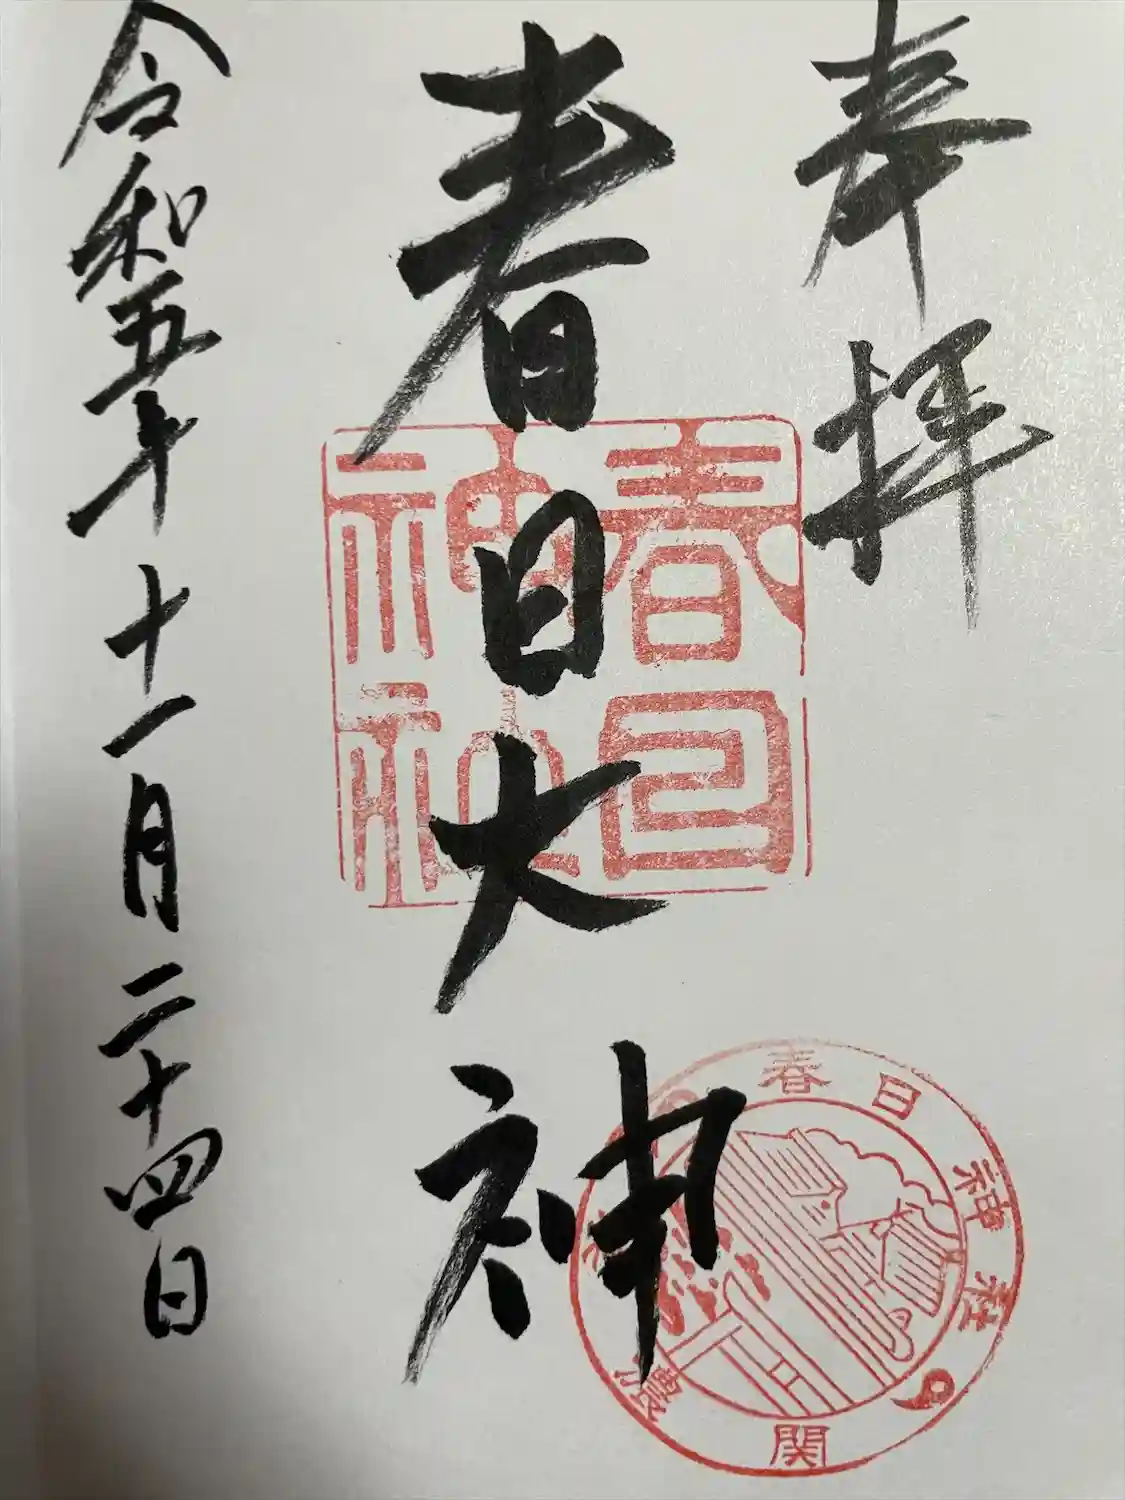 奉拝
春日大神
令和五年十一月二十四日
春日神社
春日神社
関
濃